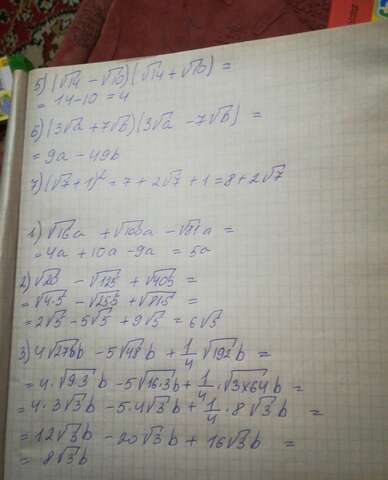 5) (√14 - √10)(√14 + √10) =
= 14-10 = 4
6) (3√a + 7√b)(3√a - 7√b) =
= 9a - 49b
7) (√7+1)² = 7 + 2√7 + 1 = 8 + 2√7
1) √16a + √100a - √81a =
= 4a + 10a - 9a = 5a
2) √20 - √125 + √405 =
= √4·5 - √25·5 + √81·5 =
= 2√5 - 5√5 + 9√5 = 6√5
3) 4√27b - 5√48b + 1/4 √192b =
= 4·√9·3b - 5√16·3b + 1/4·√3×64b =
= 4·3√3b - 5·4√3b + 1/4·8√3b =
= 12√3b - 20√3b + 16√3b =
= 8√3b